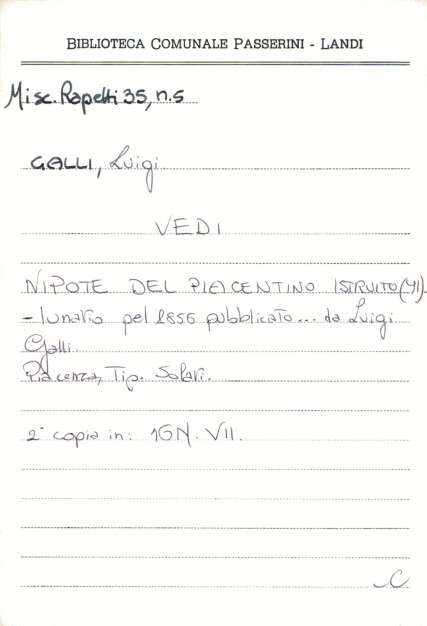 BIBLIOTECA COMUNALE PASSERINI - LANDI
Misc. Rapetti 35, n.5
GALLI, Luigi
VEDI
NIPOTE DEL PIACENTINO ISTRUITO (Il).
- lunario pel 1856 pubblicato... da Luigi
Galli.
Piacenza, Tip. Solari.
2ª copia in: IGN. VII.